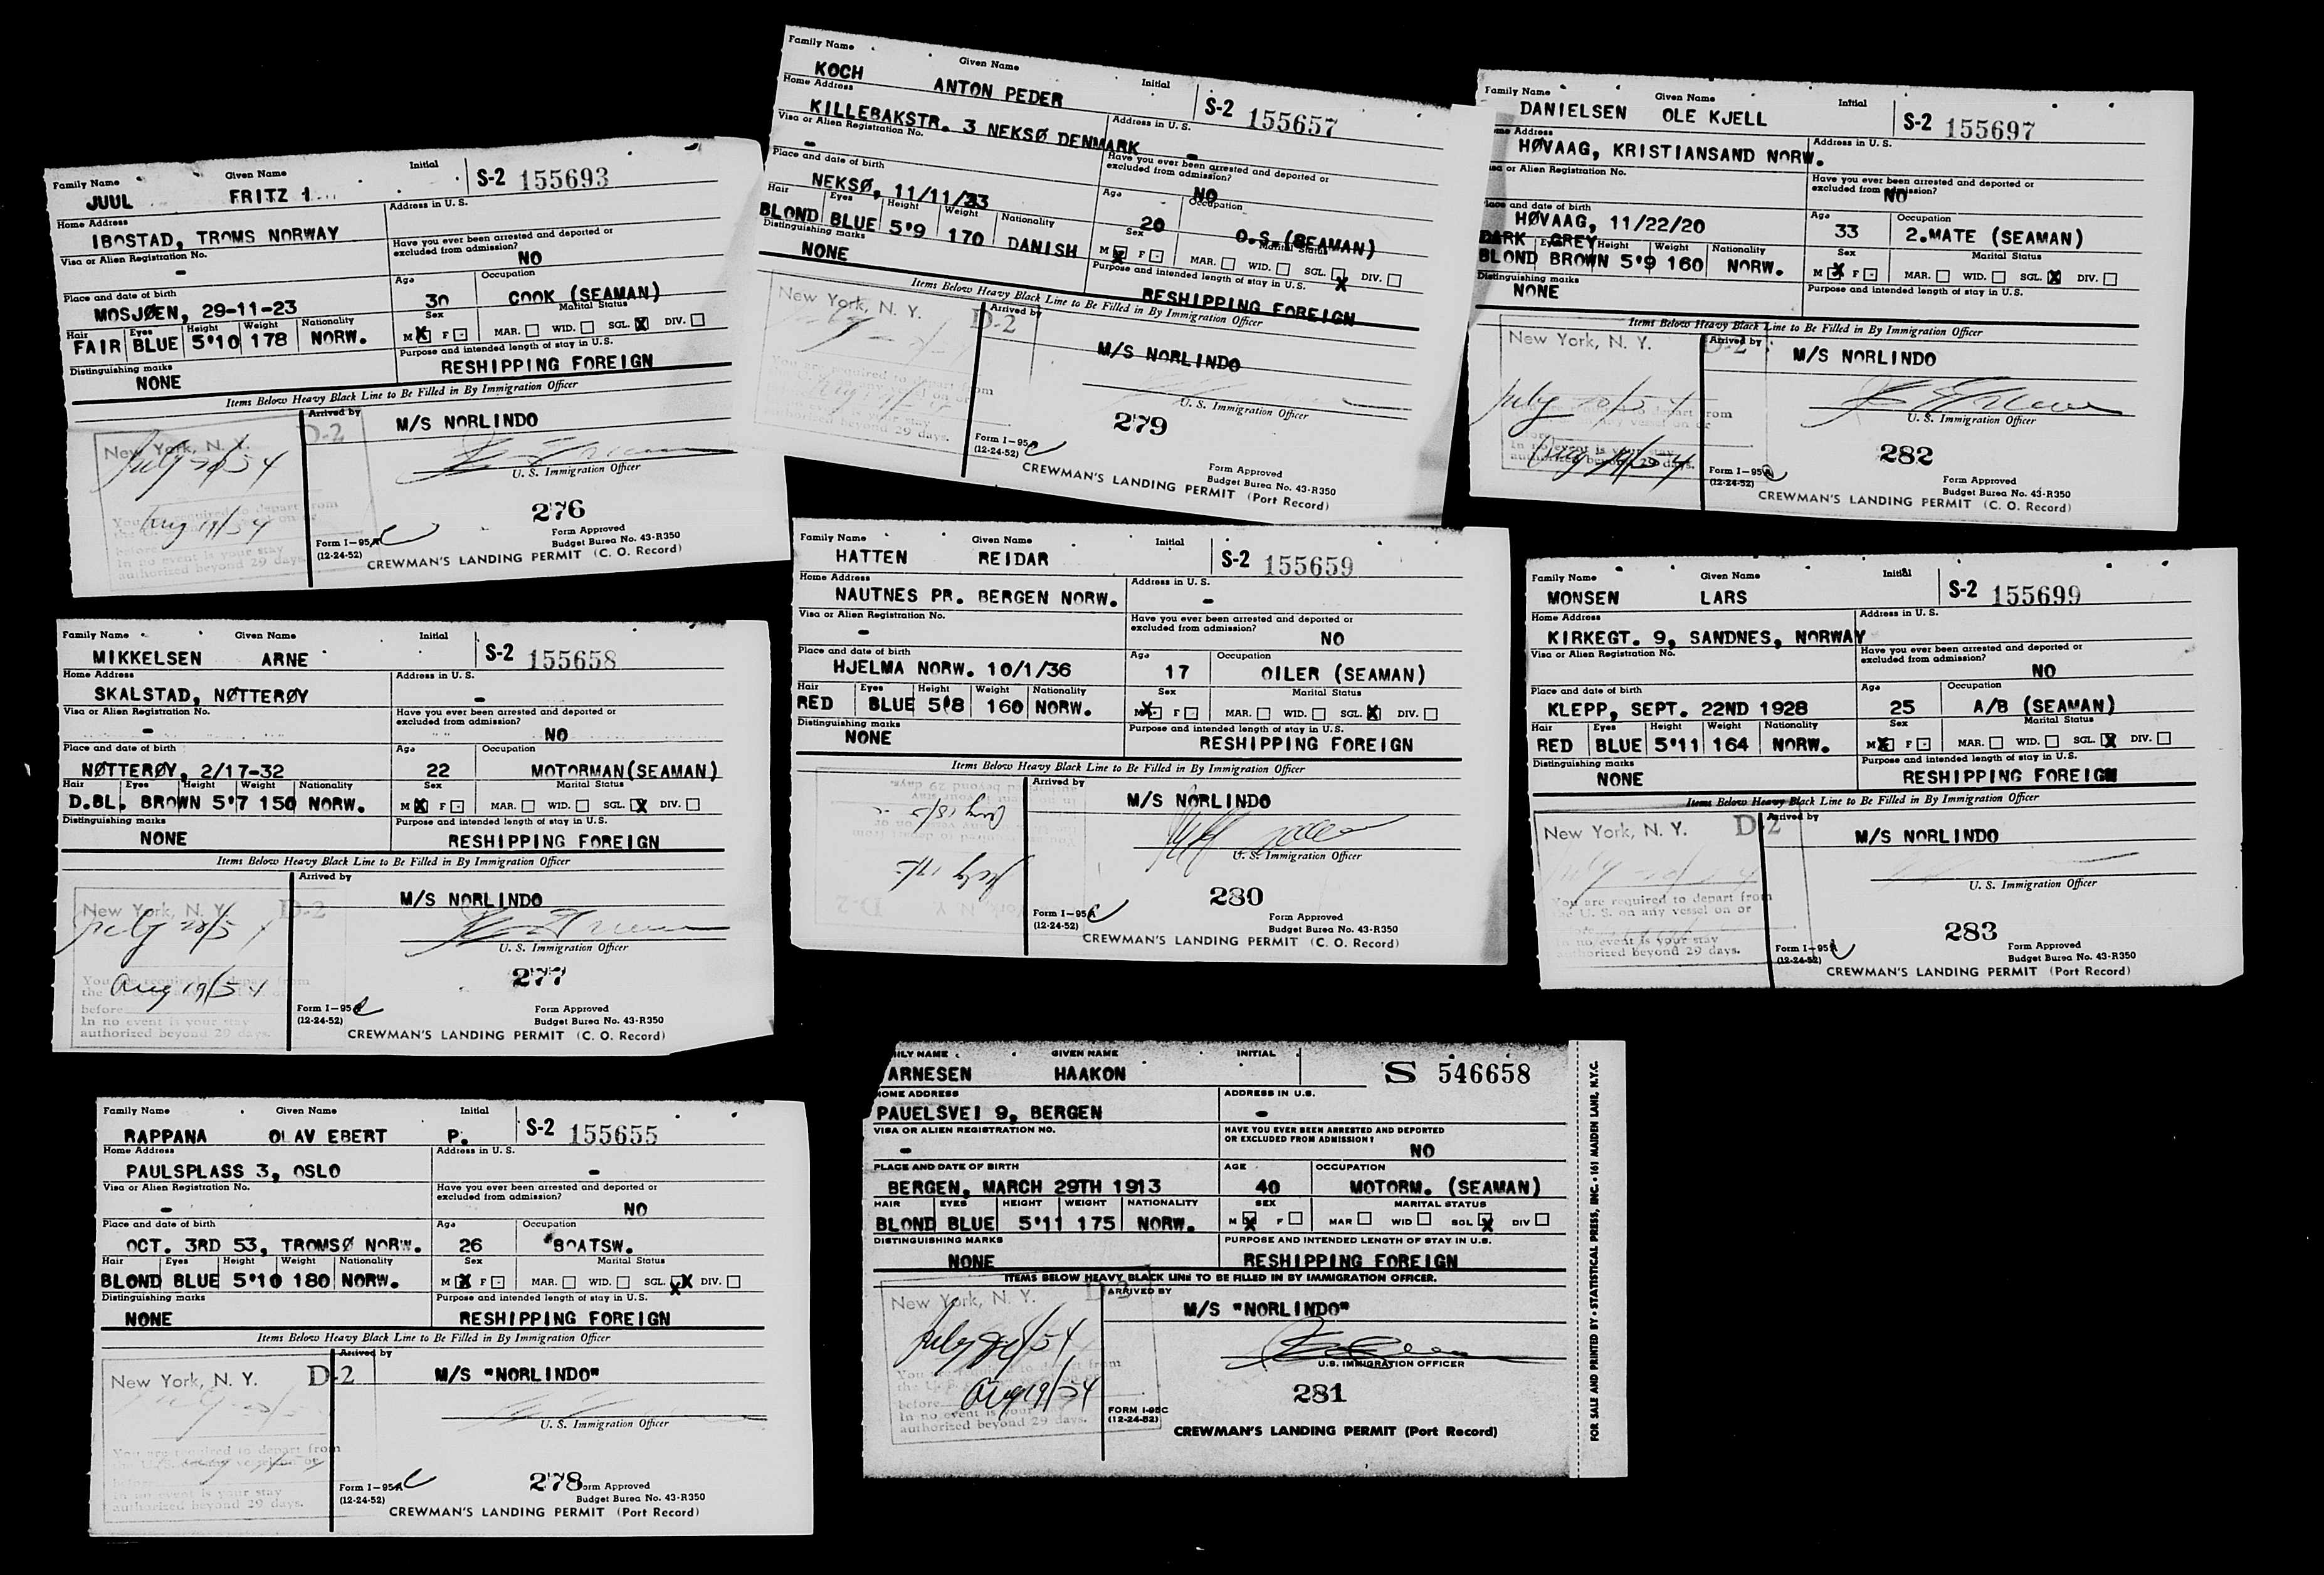 Family Name Given Name Initial
JUUL FRITZ 1 S-2 155693
Home Address Address in U. S.
IBOSTAD, TROMS NORWAY
Visa or Alien Registration No. Have you ever been arrested and deported or excluded from admission?
- NO
Place and date of birth Age Occupation
MOSJØEN, 29-11-23 30 COOK (SEAMAN)
Hair Eyes Height Weight Nationality Sex Marital Status
FAIR BLUE 5'10 178 NORW. M X F MAR. WID. SGL. X DIV.
Distinguishing marks Purpose and intended length of stay in U. S.
NONE RESHIPPING FOREIGN
Items Below Heavy Black Line to Be Filled in By Immigration Officer
Arrived by
New York, N. Y. D-2 M/S NORLINDO
July 20/54
U. S. Immigration Officer
You are required to depart from
Aug 19/54
before
In no event is your stay
authorized beyond 29 days.
276
Form I-95A
(12-24-52)
Form Approved
Budget Burea No. 43-R350
CREWMAN'S LANDING PERMIT (C. O. Record)
Family Name Given Name Initial
KOCH ANTON PEDER S-2 155657
Home Address Address in U. S.
KILLEBAKSTR. 3 NEKSØ DENMARK -
Visa or Alien Registration No. Have you ever been arrested and deported or excluded from admission?
- NO
Place and date of birth Age Occupation
NEKSØ, 11/11/33 20 O.S. (SEAMAN)
Hair Eyes Height Weight Nationality Sex Marital Status
BLOND BLUE 5'9 170 DANISH M X F MAR. WID. SGL. X DIV.
Distinguishing marks Purpose and intended length of stay in U. S.
NONE RESHIPPING FOREIGN
Items Below Heavy Black Line to Be Filled in By Immigration Officer
Arrived by
New York, N. Y. D-2 M/S NORLINDO
U. S. Immigration Officer
authorized beyond 29 days.
279
Form I-95
(12-24-52)
Form Approved
Budget Burea No. 43-R350
CREWMAN'S LANDING PERMIT (Port Record)
Family Name Given Name Initial
DANIELSEN OLE KJELL S-2 155697
Home Address Address in U. S.
HØVAAG, KRISTIANSAND NORW.
Visa or Alien Registration No. Have you ever been arrested and deported or excluded from admission?
NO
Place and date of birth Age Occupation
HØVAAG, 11/22/20 33 2.MATE (SEAMAN)
DARK GREY
Hair Eyes Height Weight Nationality Sex Marital Status
BLOND BROWN 5'9 160 NORW. M X F MAR. WID. SGL. X DIV.
Distinguishing marks Purpose and intended length of stay in U. S.
NONE
Items Below Heavy Black Line to Be Filled in By Immigration Officer
Arrived by
New York, N. Y. D-2 M/S NORLINDO
July 20/54
U. S. Immigration Officer
before
In no event is your stay
authorized beyond 29 days.
282
Form I-95
(12-24-52)
Form Approved
Budget Burea No. 43-R350
CREWMAN'S LANDING PERMIT (C. O. Record)
Family Name Given Name Initial
MIKKELSEN ARNE S-2 155658
Home Address Address in U. S.
SKALSTAD, NØTTERØY -
Visa or Alien Registration No. Have you ever been arrested and deported or excluded from admission?
- NO
Place and date of birth Age Occupation
NØTTERØY, 2/17-32 22 MOTORMAN(SEAMAN)
Hair Eyes Height Weight Nationality Sex Marital Status
D.BL. BROWN 5'7 150 NORW. M X F MAR. WID. SGL. X DIV.
Distinguishing marks Purpose and intended length of stay in U. S.
NONE RESHIPPING FOREIGN
Items Below Heavy Black Line to Be Filled in By Immigration Officer
Arrived by
New York, N. Y. D-2 M/S NORLINDO
July 20/5
U. S. Immigration Officer
Aug 19/54
before
In no event is your stay
authorized beyond 29 days.
277
Form I-95
(12-24-52)
Form Approved
Budget Burea No. 43-R350
CREWMAN'S LANDING PERMIT (C. O. Record)
Family Name Given Name Initial
HATTEN REIDAR S-2 155659
Home Address Address in U. S.
NAUTNES PR. BERGEN NORW. -
Visa or Alien Registration No. Have you ever been arrested and deported or excluded from admission?
- NO
Place and date of birth Age Occupation
HJELMA NORW. 10/1/36 17 OILER (SEAMAN)
Hair Eyes Height Weight Nationality Sex Marital Status
RED BLUE 5'8 160 NORW. M X F MAR. WID. SGL. X DIV.
Distinguishing marks Purpose and intended length of stay in U. S.
NONE RESHIPPING FOREIGN
Items Below Heavy Black Line to Be Filled in By Immigration Officer
Arrived by
M/S NORLINDO
U. S. Immigration Officer
280
Form I-95A
(12-24-52)
Form Approved
Budget Burea No. 43-R350
CREWMAN'S LANDING PERMIT (C. O. Record)
Family Name Given Name Initial
MONSEN LARS S-2 155699
Home Address Address in U. S.
KIRKEGT. 9, SANDNES, NORWAY
Visa or Alien Registration No. Have you ever been arrested and deported or excluded from admission?
NO
Place and date of birth Age Occupation
KLEPP, SEPT. 22ND 1928 25 A/B (SEAMAN)
Hair Eyes Height Weight Nationality Sex Marital Status
RED BLUE 5'11 164 NORW. M X F MAR. WID. SGL. X DIV.
Distinguishing marks Purpose and intended length of stay in U. S.
NONE RESHIPPING FOREIGN
Items Below Heavy Black Line to Be Filled in By Immigration Officer
Arrived by
New York, N. Y. D-2 M/S NORLINDO
U. S. Immigration Officer
You are required to depart from
the U. S. on any vessel on or
In no event is your stay
authorized beyond 29 days.
283
Form I-95A
(12-24-52)
Form Approved
Budget Burea No. 43-R350
CREWMAN'S LANDING PERMIT (Port Record)
Family Name Given Name Initial
RAPPANA OLAV EBERT P. S-2 155655
Home Address Address in U. S.
PAULSPLASS 3, OSLO -
Visa or Alien Registration No. Have you ever been arrested and deported or excluded from admission?
- NO
Place and date of birth Age Occupation
OCT. 3RD 53, TROMSØ NORW. 26 BOATSW.
Hair Eyes Height Weight Nationality Sex Marital Status
BLOND BLUE 5'10 180 NORW. M X F MAR. WID. SGL. X DIV.
Distinguishing marks Purpose and intended length of stay in U. S.
NONE RESHIPPING FOREIGN
Items Below Heavy Black Line to Be Filled in By Immigration Officer
Arrived by
New York, N. Y. D-2 M/S "NORLINDO"
U. S. Immigration Officer
You are required to depart from
before
In no event is your stay
authorized beyond 29 days.
278
Form I-95A
(12-24-52)
orm Approved
Budget Burea No. 43-R350
CREWMAN'S LANDING PERMIT (Port Record)
ILY NAME GIVEN NAME INITIAL
ARNESEN HAAKON S 546658
HOME ADDRESS ADDRESS IN U.S.
PAUELSVEI 9, BERGEN -
VISA OR ALIEN REGISTRATION NO. HAVE YOU EVER BEEN ARRESTED AND DEPORTED OR EXCLUDED FROM ADMISSION?
- NO
PLACE AND DATE OF BIRTH AGE OCCUPATION
BERGEN, MARCH 29TH 1913 40 MOTORM. (SEAMAN)
HAIR EYES HEIGHT WEIGHT NATIONALITY SEX MARITAL STATUS
BLOND BLUE 5'11 175 NORW. M X F MAR WID SGL X DIV
DISTINGUISHING MARKS PURPOSE AND INTENDED LENGTH OF STAY IN U.S.
NONE RESHIPPING FOREIGN
ITEMS BELOW HEAVY BLACK LINE TO BE FILLED IN BY IMMIGRATION OFFICER.
ARRIVED BY
New York, N. Y. D-2 M/S "NORLINDO"
U.S. IMMIGRATION OFFICER
Aug 19/54
before
In no event is your stay
authorized beyond 29 days.
281
FORM I-95C
(12-24-52)
CREWMAN'S LANDING PERMIT (Port Record)
FOR SALE AND PRINTED BY • STATISTICAL PRESS, INC. • 161 MAIDEN LANE, N.Y.C.